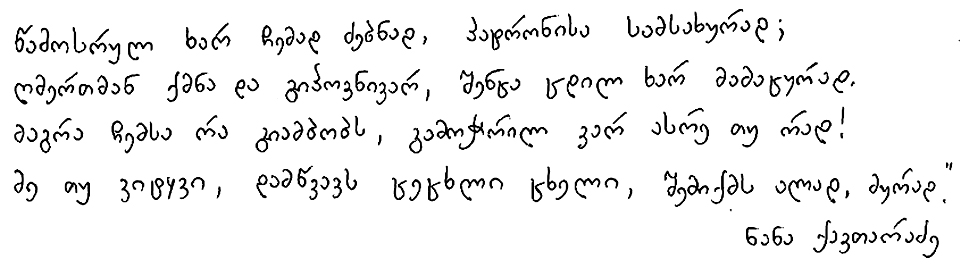 წამოსრულ ხარ ჩემად ძებნად, პატრონისა სამსახურად;
ღმერთმან ქმნა და გიპოვნივარ, შენცა ცდილ ხარ მამაცურად.
მაგრა ჩემსა რა გიამბობს, გამოჭრილ ვარ ასრე თუ რად!
მე თუ ვიტყვი, დამწვავს ცეცხლი ცხელი, შემიქმს ალად, მურად."
ნანა ქავთარაძე